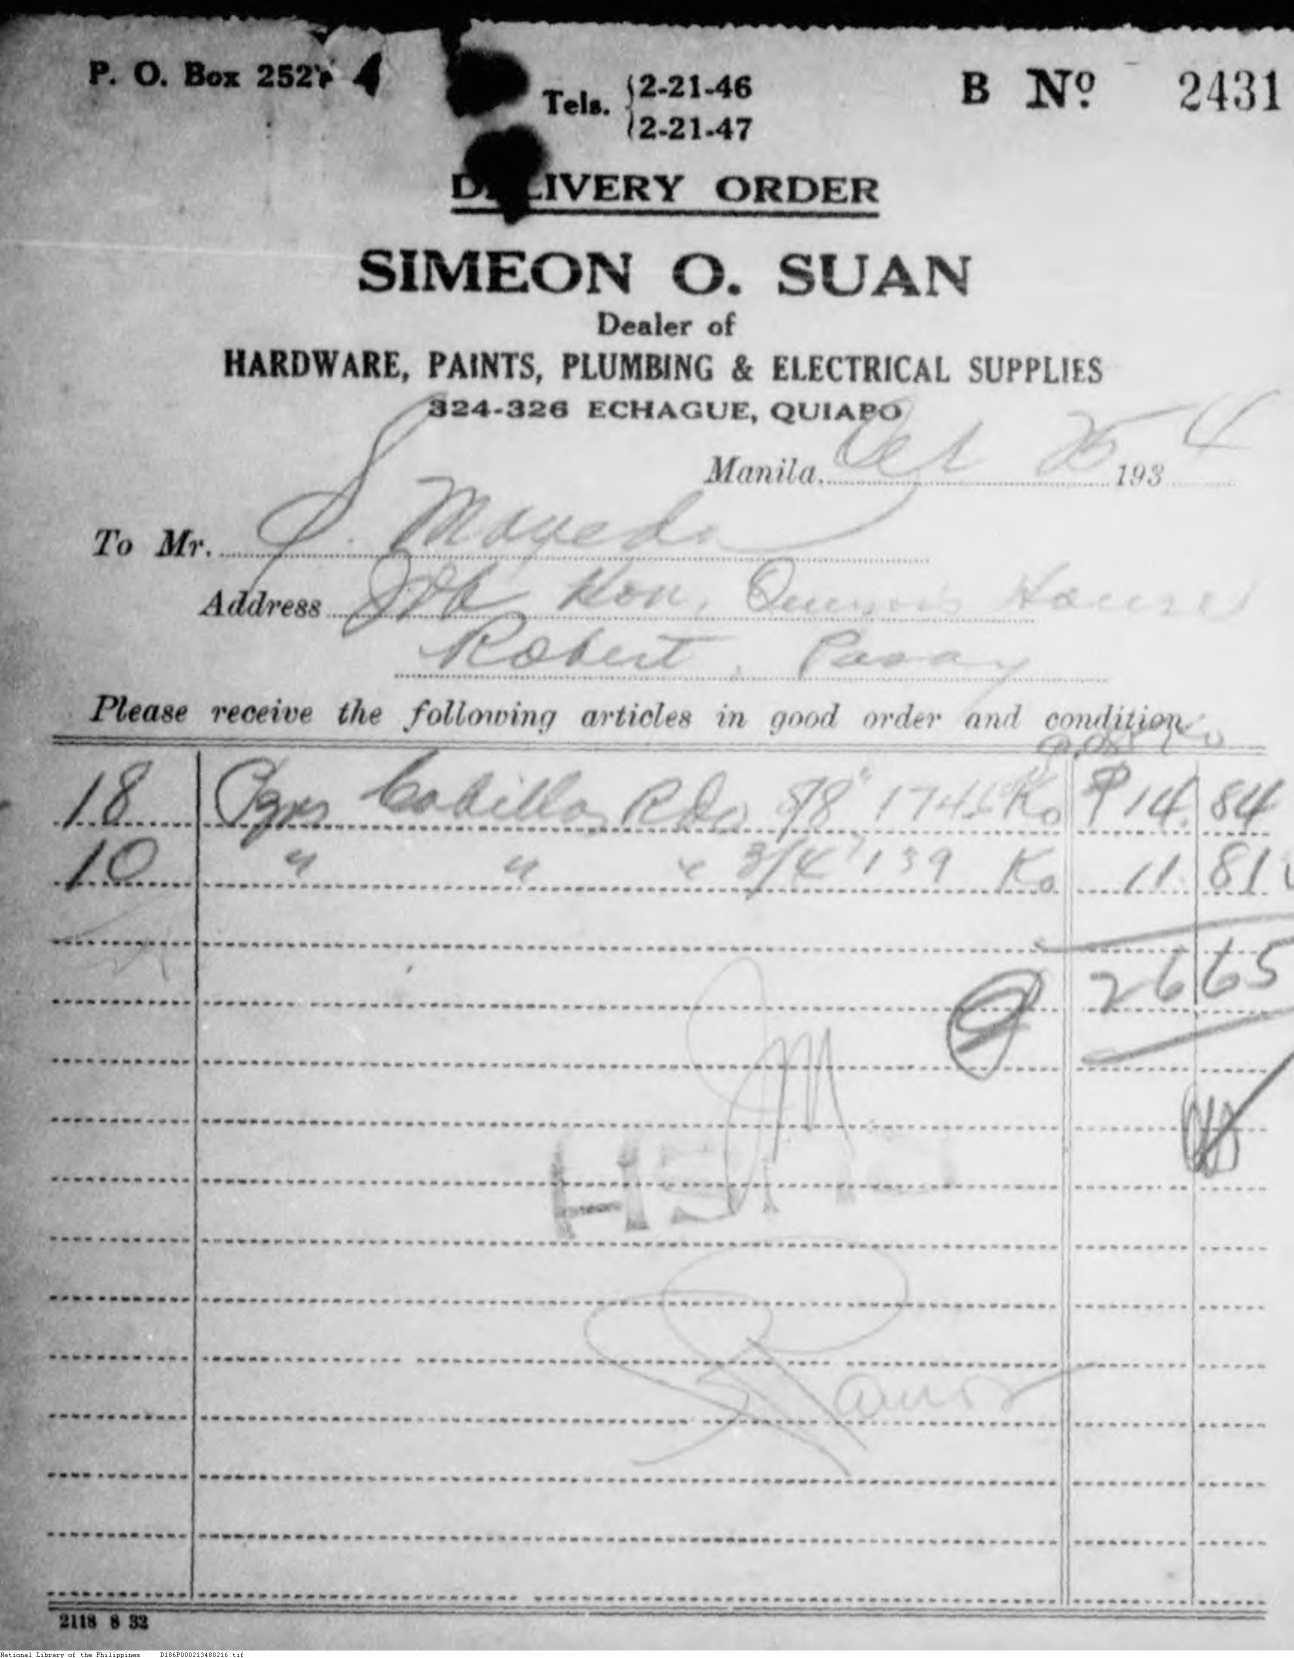 P. O. Box 252
Tels. 2-21-46
2-21-47
B Nº 2431
DELIVERY ORDER
SIMEON O. SUAN
Dealer of
HARDWARE, PAINTS, PLUMBING & ELECTRICAL SUPPLIES
324-326 ECHAGUE, QUIAPO
Manila, Oct 25 1934
To Mr. Mayeda
Address Job Hon. House
Robert, Pasay
Please receive the following articles in good order and condition
18 Pgns Cabillas Rda 5/8" 174.6 Ko ₱14.84
10 " " " 3/4" 139 Ko 11.81
26 65
CASH
Ramos
2118 8 32
National Library of the Philippines D186P000213480216.tif